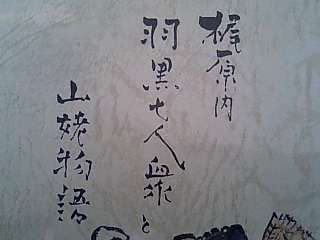 梶原内
羽黒七人血衆と
山姥物語